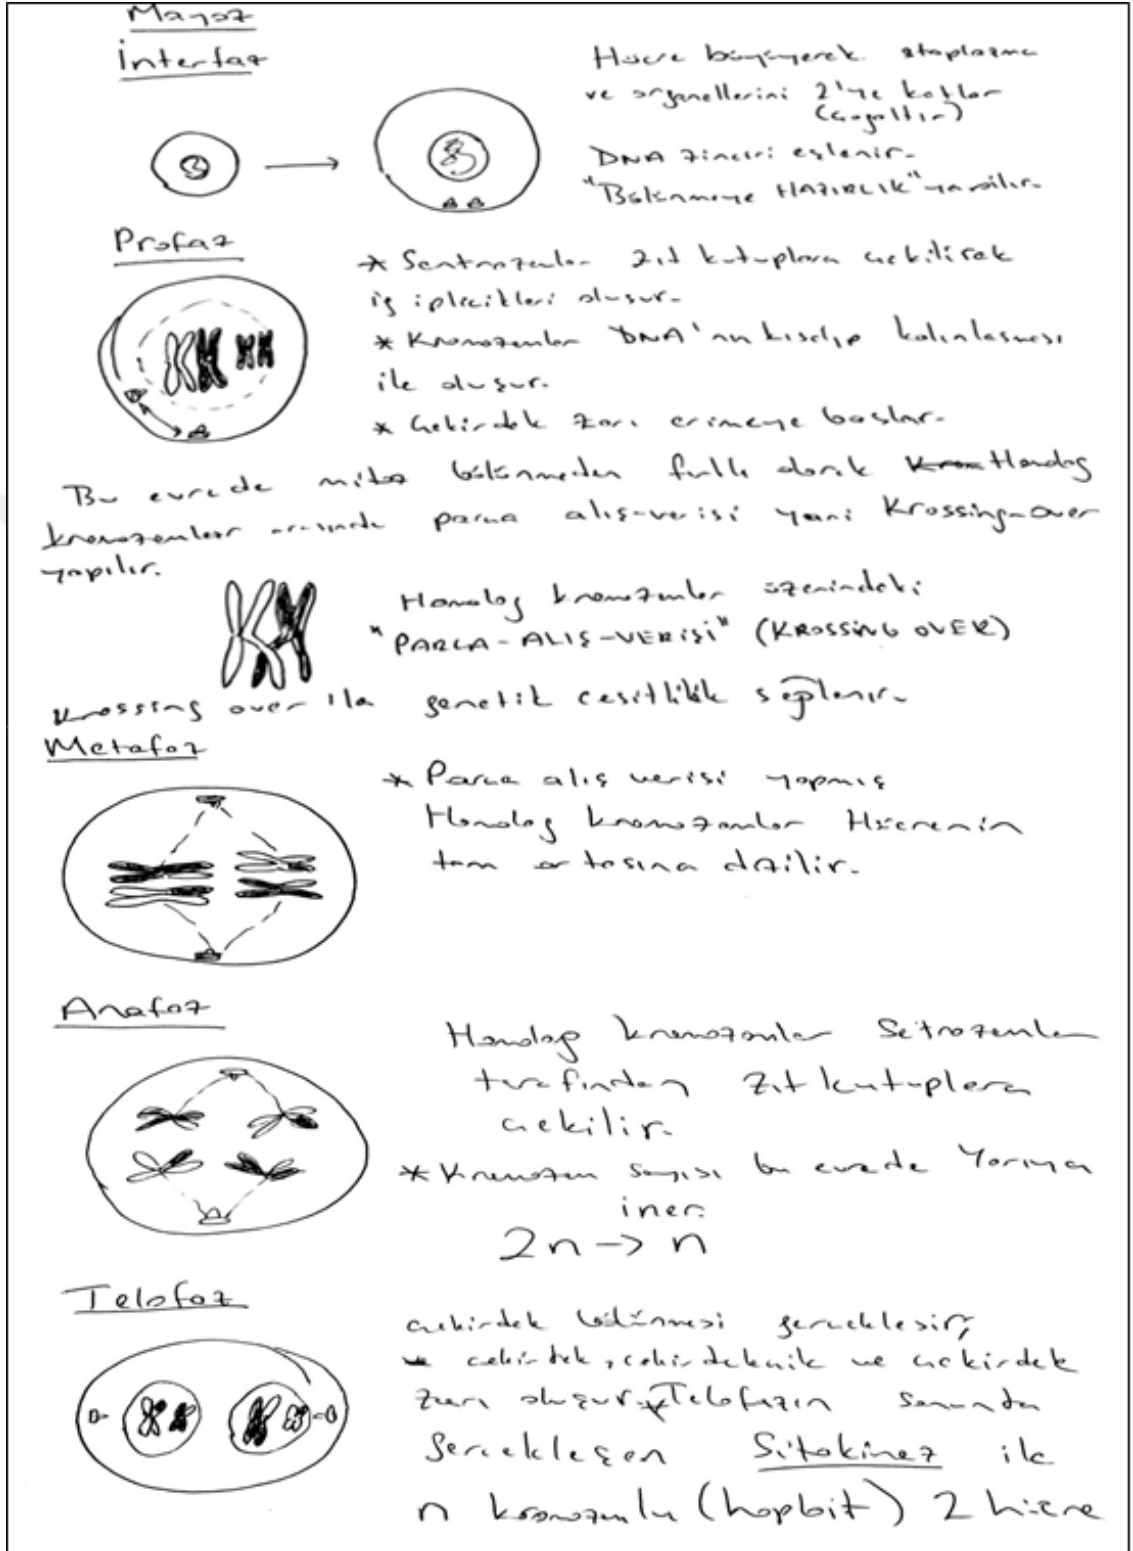 Mayoz
İnterfaz
Hücre büyüyerek stoplazma
ve organellerini 2'ye katlar
(çoğaltır)
DNA zinciri eşlenir.
"Bölünmeye HAZIRLIK" yapılır.
Profaz
* Sentrozomlar zıt kutuplara çekilirek
iğ iplicikleri oluşur.
* Kromozomlar DNA'nın kısalıp kalınlaşması
ile oluşur.
* Çekirdek zarı erimeye başlar.
Bu evrede mitoz bölünmeden farklı olarak Homolog
kromozomlar arasında parça alış-verişi yani Krossing-over
yapılır.
Homolog kromozomlar üzerindeki
"PARÇA-ALIŞ-VERİŞİ" (KROSSİNG OVER)
Krossing over ila genetik çeşitlilik sağlanır.
Metafaz
* Parça alış verişi yapmış
Homolog kromozomlar Hücrenin
tam ortasına dizilir.
Anafaz
Homolog kromozomlar Setrozomlar
tarafından zıt kutuplara
çekilir.
* Kromozom sayısı bu evrede Yarıya
iner.
2n -> n
Telofaz
Çekirdek bölünmesi gerçekleşir,
çekirdek, çekirdekcik ve çekirdek
zarı oluşur. * Telofazın sonunda
Gerçekleşen Sitokinez ile
n kromozomlu (haploit) 2 hücre